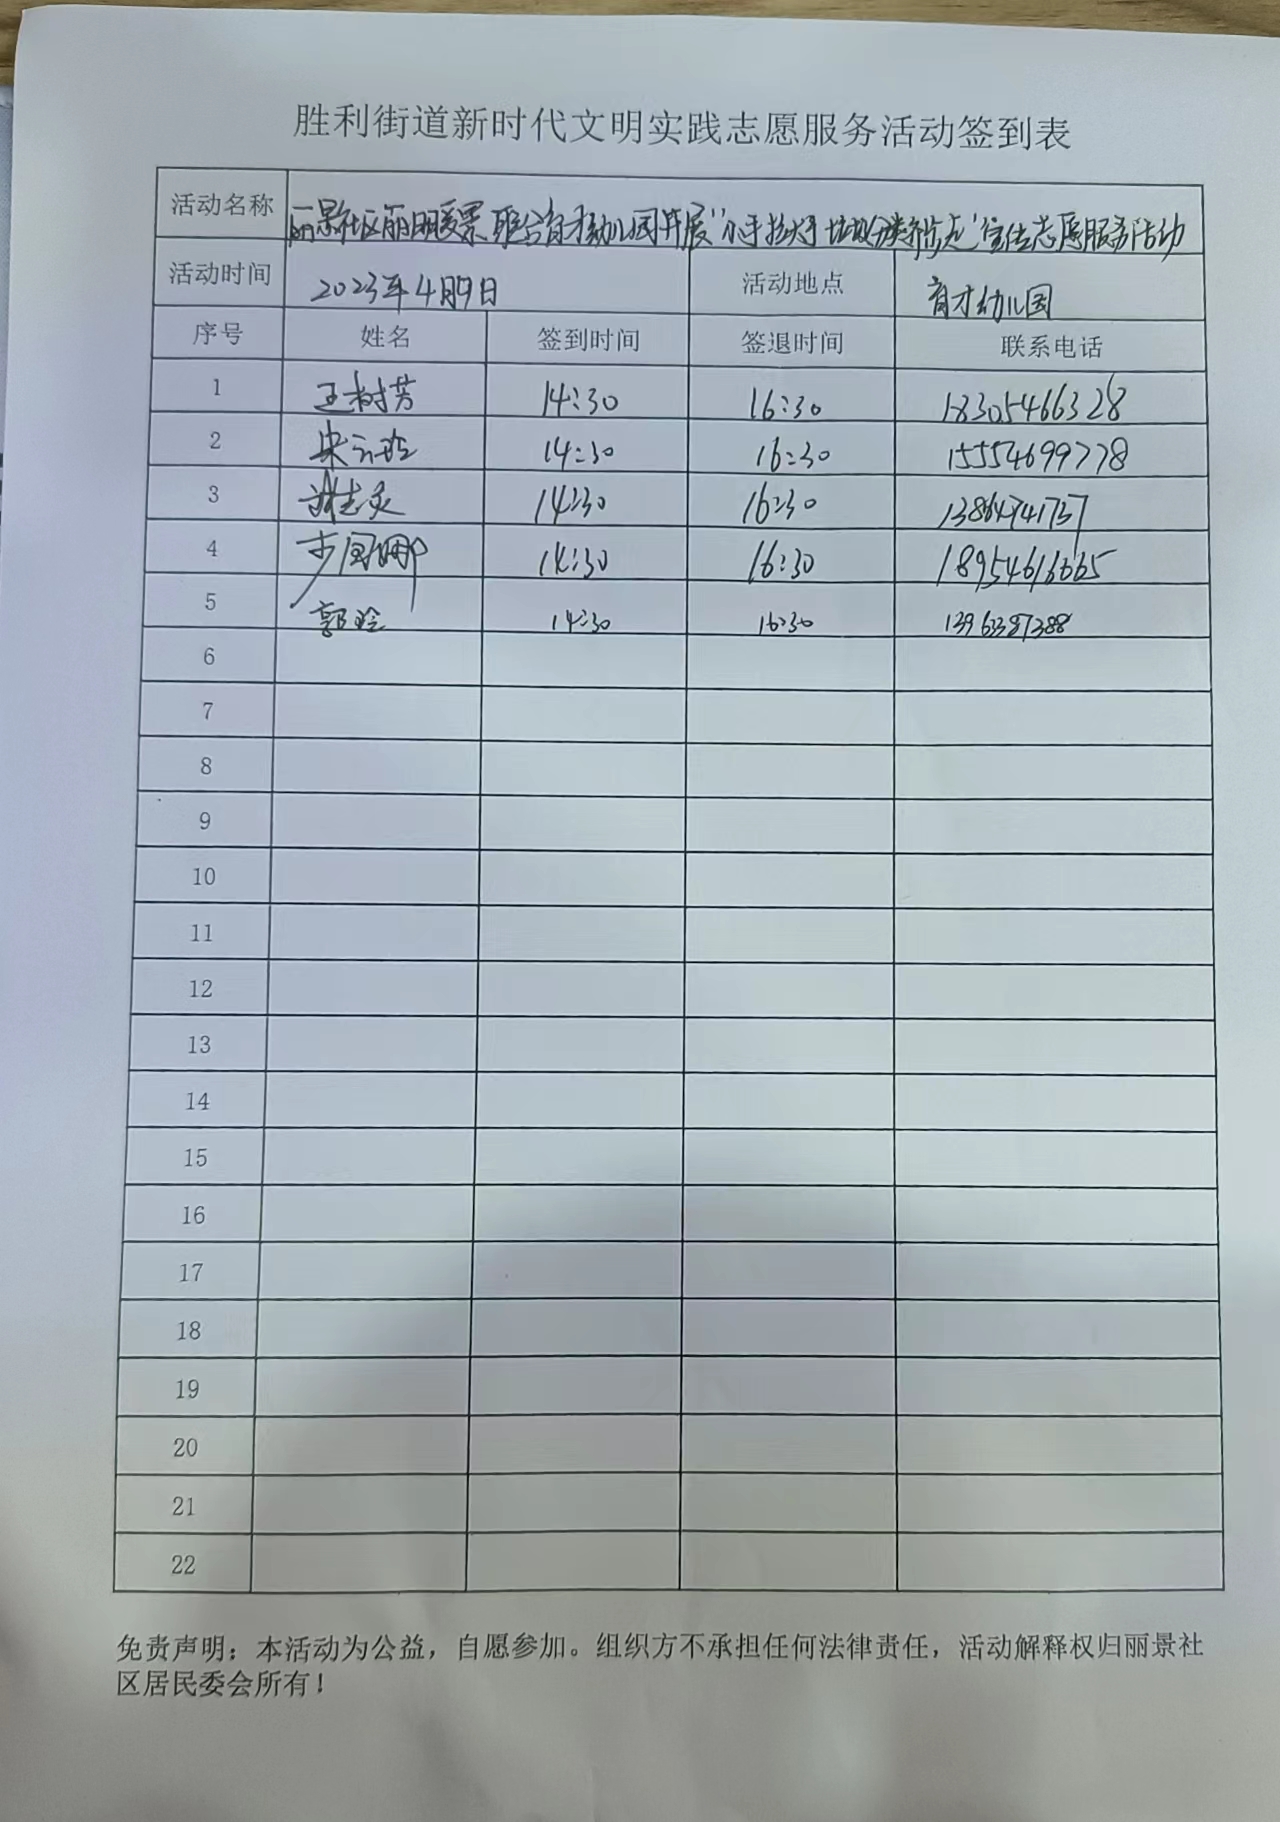 胜利街道新时代文明实践志愿服务活动签到表
活动名称 丽景社区丽明暖票联合育才幼儿园开展“小手拉大手 垃圾分类新亮点”宣传志愿服务活动
活动时间 2023年4月9日 活动地点 育才幼儿园
序号 姓名 签到时间 签退时间 联系电话
1 王树芳 14:30 16:30 18305466328
2 14:30 16:30 15554699778
3 14:30 16:30 13864741737
4 14:30 16:30 18954616665
5 郭玲 14:30 16:30 13963387388
6
7
8
9
10
11
12
13
14
15
16
17
18
19
20
21
22
免责声明：本活动为公益，自愿参加。组织方不承担任何法律责任，活动解释权归丽景社
区居民委会所有！